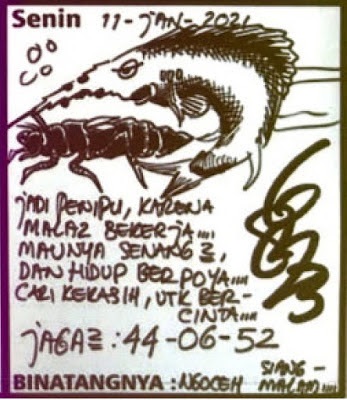 Senin 11-JAN-2021
JADI PENIPU, KARENA
MALAZ BEKERJA....
MAUNYA SENANG2,
DAN HIDUP BERPOYA....
CARI KEKASIH, UTK BER-
CINTA....
JAGA2 : 44-06-52
BINATANGNYA : NGOCEH SIANG-
MALAM....